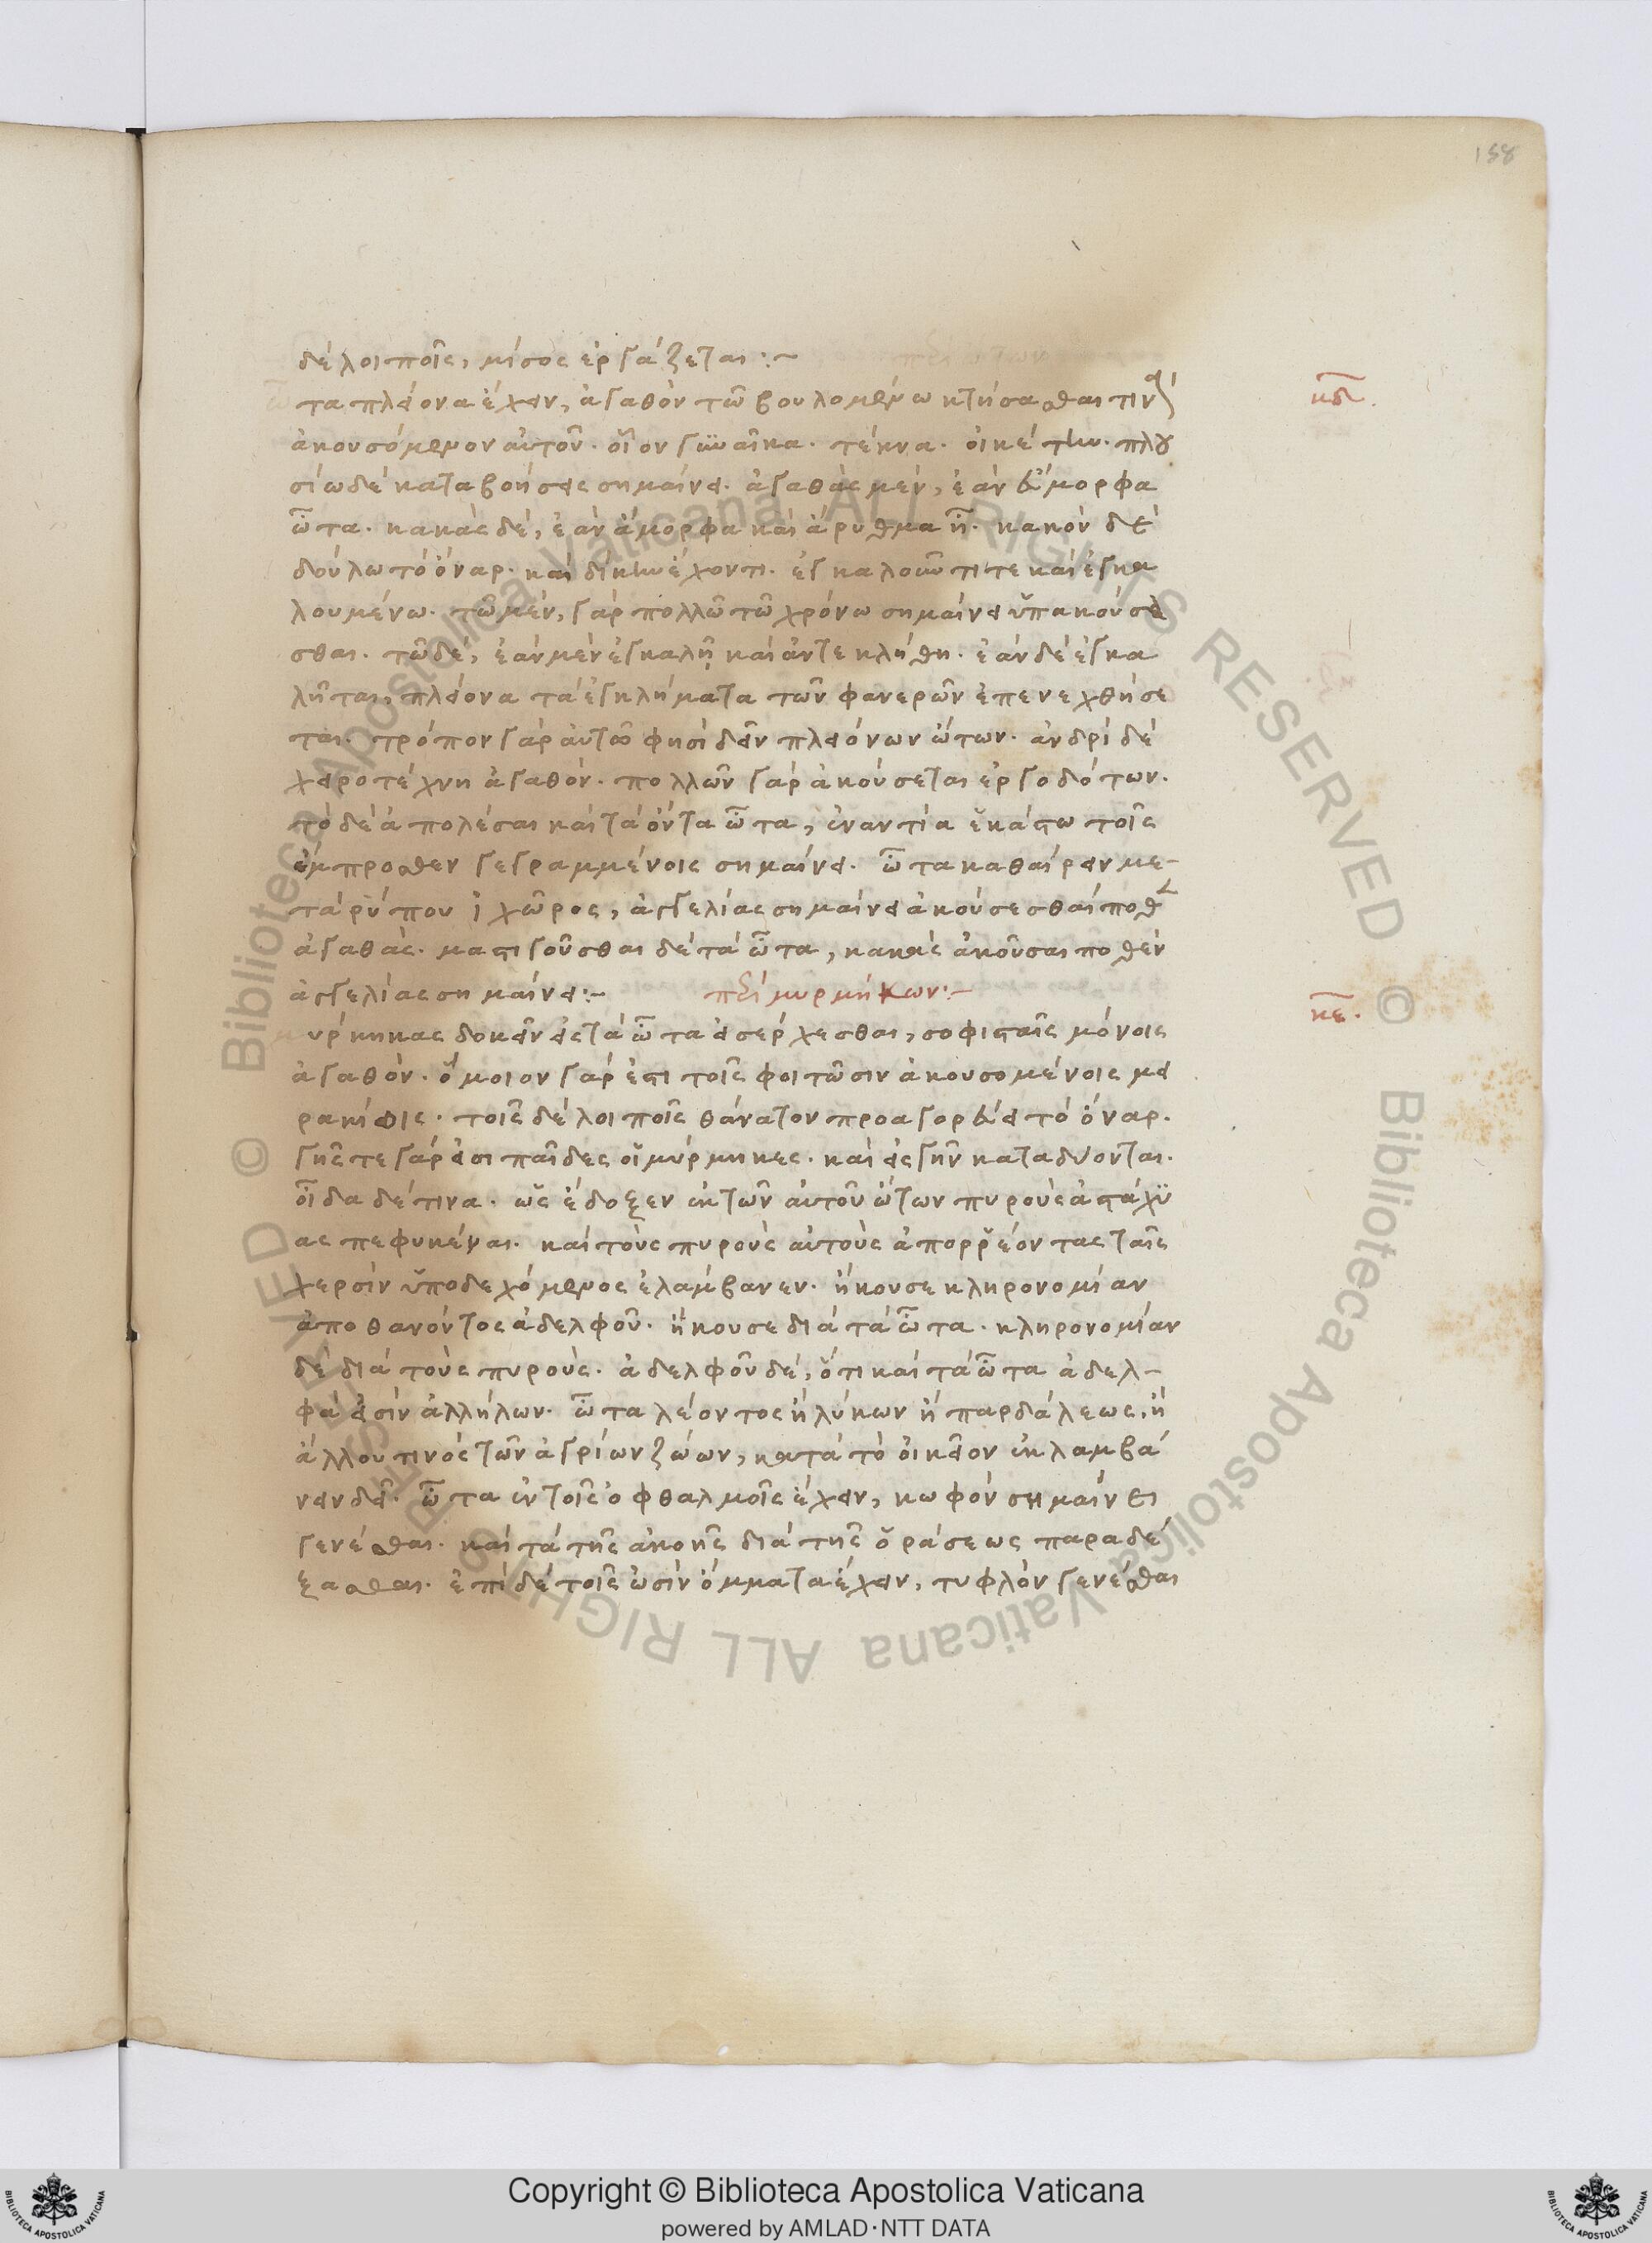 158
δὲ λοιποῖς, μῖσος ἐργάζεται :~ περὶ ὤτων
κδ.
ὦτα πλείονα ἔχειν, ἀγαθὸν τῶ βουλομένω κτήσασθαι τινὰ
ἀκουσόμενον αὐτοῦ. οἷον γυναῖκα. τέκνα. οἰκέτην. πλου
σίω δὲ καταβοήσεις σημαίνει. ἀγαθὰς μὲν, ἐὰν εὔμορφα
ὦτα. κακὰς δὲ, ἐὰν ἄμορφα καὶ ἄρυθμα ἦ. κακὸν δὲ
δούλω τὸ ὄναρ. καὶ δίκην ἔχοντι. ἐγκαλοῦντι τε καὶ ἐγκα
λουμένω. τῶ μὲν, γὰρ πολλῶ τῶ χρόνω σημαίνει ὑπακούσε
σθαι. τῶ δὲ, ἐὰν μὲν ἐγκαλῆ καὶ ἀντεκλήθη. ἐὰν δὲ ἐγκα
λῆται, πλείονα τὰ ἐγκλήματα τῶν φανερῶν ἐπενεχθήσε
ται. τρόπον γὰρ αὐτῶ φησὶ δεῖν πλειόνων ὤτων. ἀνδρὶ δὲ
χειροτέχνη ἀγαθόν. πολλῶν γὰρ ἀκούσεται ἐργοδότων.
τὸ δὲ ἀπολέσαι καὶ τὰ ὄντα ὦτα, ἐναντία ἑκάστω τοῖς
ἔμπροσθεν γεγραμμένοις σημαίνει. ὦτα καθαίρειν με-
τὰ ῥύπου ἰχῶρος, ἀγγελίας σημαίνει ἀκούσεσθαί ποθεν
ἀγαθάς. μαστιγοῦσθαι δὲ τὰ ὦτα, κακὰς ἀκοῦσαι ποθὲν
ἀγγελίας σημαίνει :~ περὶ μυρμήκων :~
κε.
μύρμηκας δοκεῖν εἰς τὰ ὦτα εἰσέρχεσθαι, σοφισταῖς μόνοις
ἀγαθόν. ὅμοιον γάρ ἐστι τοῖς φοιτῶσιν ἀκουσομένοις μει
ρακίοις. τοῖς δὲ λοιποῖς θάνατον προαγορεύει τὸ ὄναρ.
γῆς τε γάρ εἰσι παῖδες οἱ μύρμηκες. καὶ εἰς γῆν καταδύονται.
οἶδα δέ τινα. ὡς ἔδοξεν ἐκ τῶν αὐτοῦ ὤτων πυροὺς ἀστάχυ
ας πεφυκέναι. καὶ τοὺς πυροὺς αὐτοὺς ἀπορρέοντας ταῖς
χερσὶν ὑποδεχόμενος ἐλάμβανεν. ἤκουσε κληρονομίαν
ἀποθανόντος ἀδελφοῦ. ἤκουσε διὰ τὰ ὦτα. κληρονομίαν
δὲ διὰ τοὺς πυροὺς. ἀδελφοῦ δὲ, ὅτι καὶ τὰ ὦτα ἀδελ-
φά εἰσὶν ἀλλήλων. ὦτα λέοντος ἢ λύκων ἢ παρδάλεως, ἢ
ἄλλου τινὸς τῶν ἀγρίων ζώων, κατὰ τὸ οἰκεῖον ἐκλαμβά
νειν δεῖ. ὦτα ἐν τοῖς ὀφθαλμοῖς ἔχειν, κωφὸν σημαίνει
γενέσθαι. καὶ τὰ τῆς ἀκοῆς διὰ τῆς ὁράσεως παραδέ
ξασθαι. ἐπὶ δὲ τοῖς ὠσὶν ὄμματα ἔχειν, τυφλὸν γενέσθαι
Copyright © Biblioteca Apostolica Vaticana
powered by AMLAD·NTT DATA